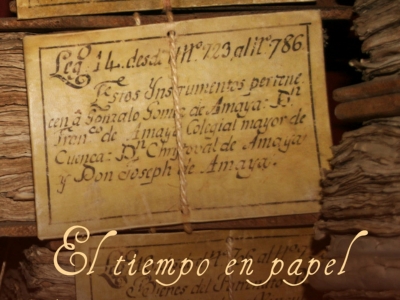 Legº 14. desde el nº 723, al nº 786.
Estos Ynstrumentos pertene
cen â Gonzalo Gomez de Amaya: Dn
Franco de Amaya Colegial mayor de
Cuenca: Dn Christoval de Amaya
y Don Joseph de Amaya.
El tiempo en papel